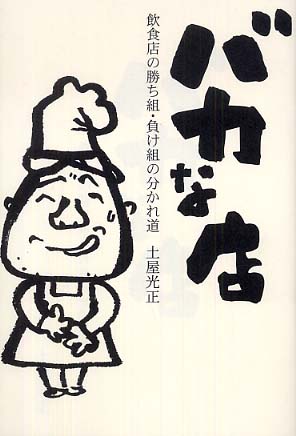 バカな店
飲食店の勝ち組・負け組の分かれ道　土屋光正